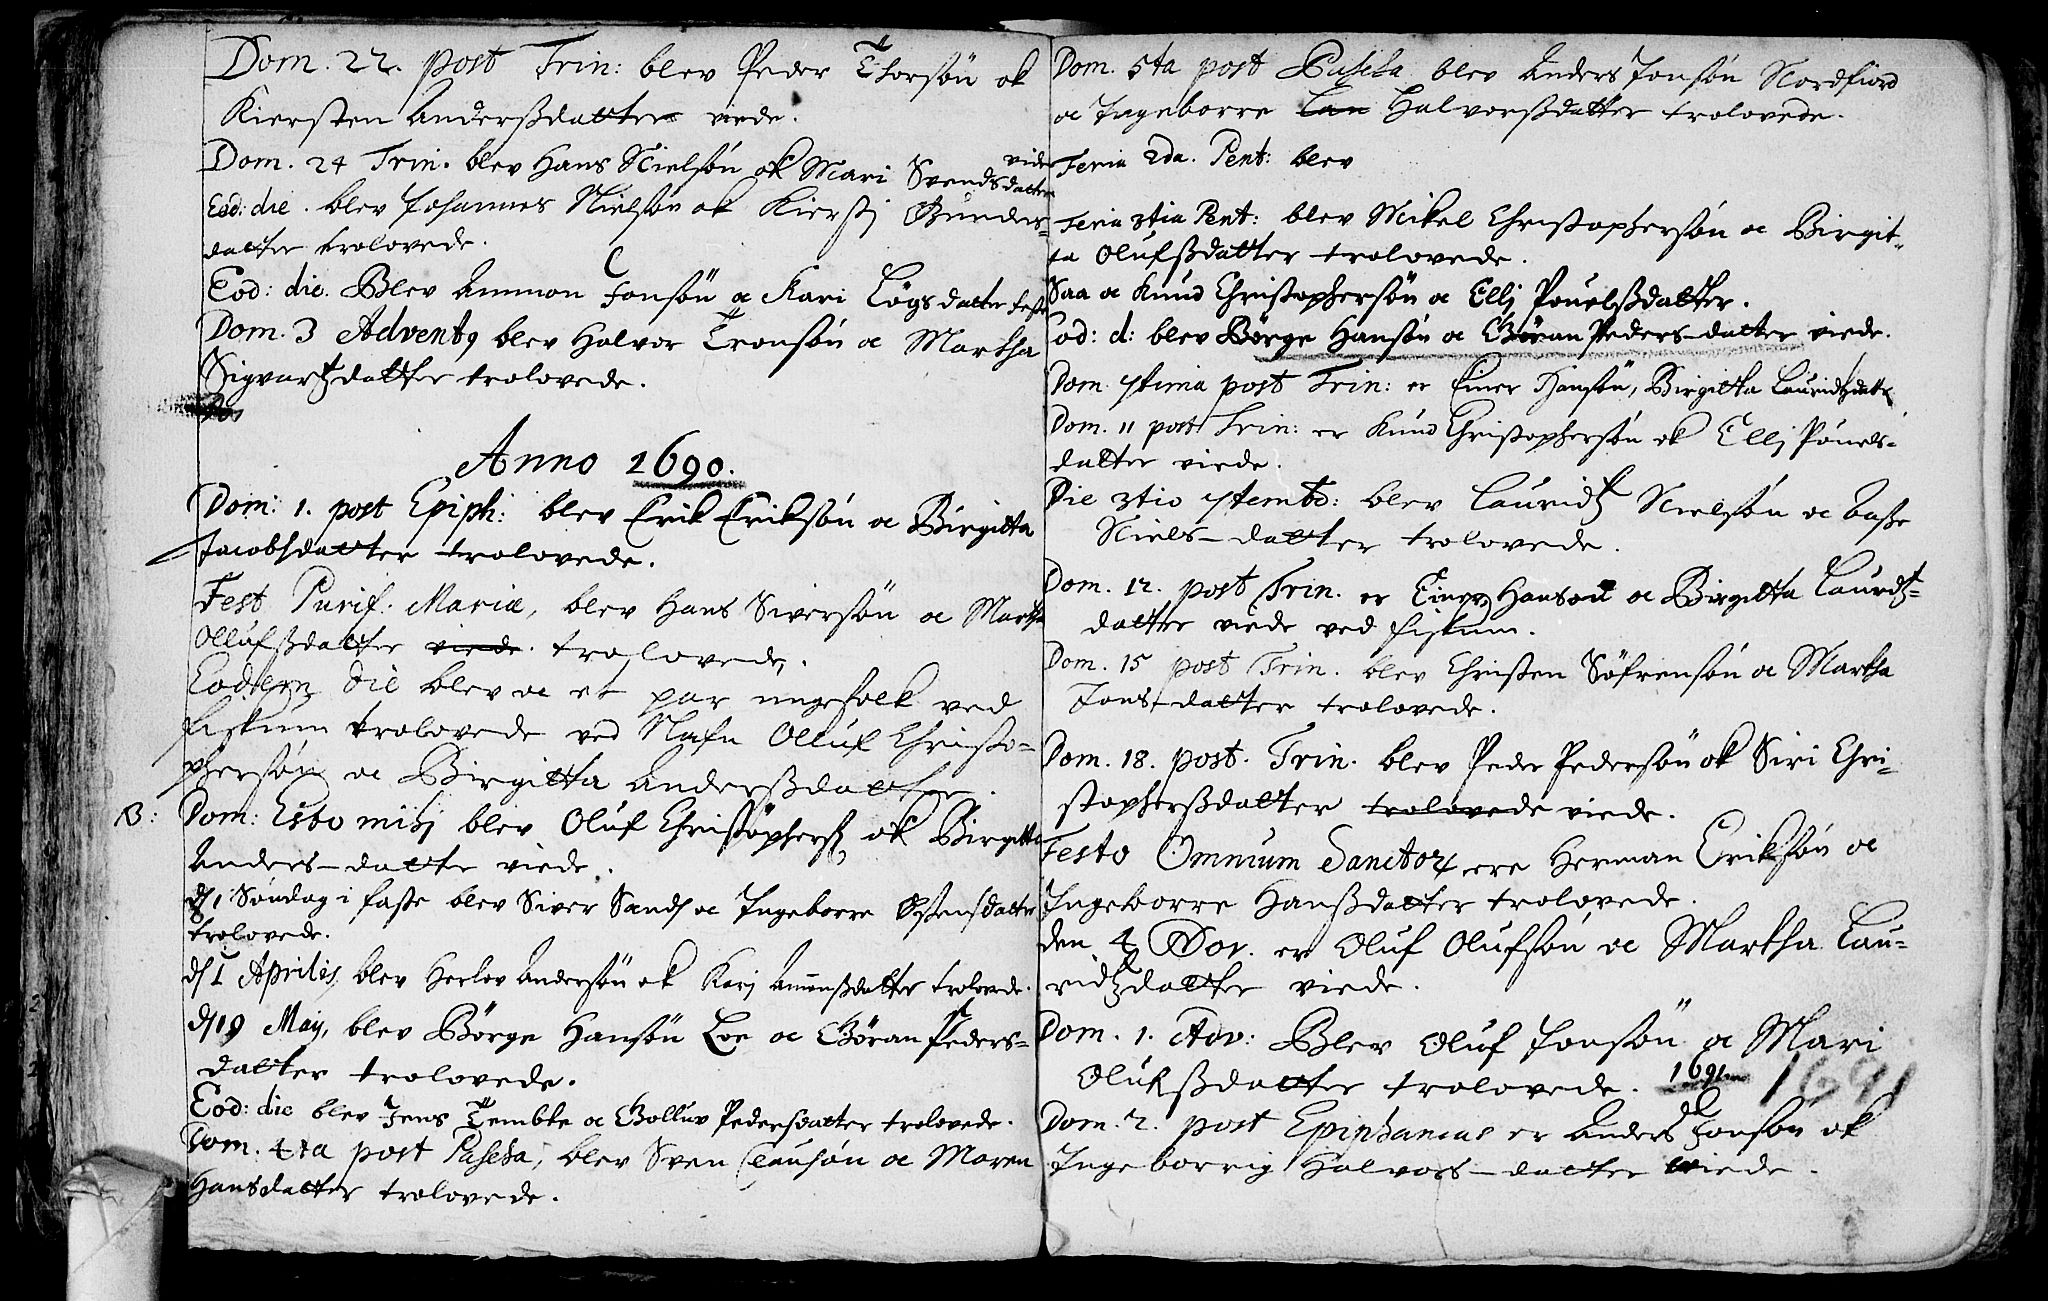 Dom. 22. post Trin: blev Peder Thorsøn ok
Kiersten Anderßdatter viede.
Dom. 24 Trin. blev Hans Nielsøn ok Mari Svendsdatter vide
Eod: die. blev Johannes Nielsøn ok Kierstj Gunders-
datter trolovede.
Eod: die. Blev Ammon Jonsøn oc Kari Løgsdatter feste
Dom. 3 Advent9 blev Halvor Tronsøn oc Martha
Sigvartzdatter trolovede.
Anno 1690.
Dom: 1. post Epiph: blev Erik Eriksøn oc Birgitta
Jacobsdatter trolovede.
Fest Purif: Mariæ, blev Hans Siversøn oc Martha
Ollufßdatter viede. trolovede.
Eodem die blev oc et par ungefolk ved
Fiskum trolovede ved Nafn Olluf Christo-
phersøn oc Birgitta Anderßdatter.
B: Dom: Esto mihj blev Oluf Christophers ok Birgitta
Anders-datter viede.
d. 1 Søndag i faste blev Siver Sands oc Ingeborre Østensdatter
trolovede.
d. 1 Aprilis, blev Herlov Andersøn ok Karj Amunßdatter trolovede.
d. 19 May, blev Børge Hansøn Loe oc Gøran Peders-
datter trolovede.
Eod: die blev Jens Tembte oc Golluv Pedersdatter trolovede.
Dom. 4ta post Pascha, blev Sven Clausøn oc Maren
Hansdatter trolovede.
Dom. 5ta post Pascha blev Anders Jonsøn Nordfiord
oc Ingeborre Lau Halvorßdatter trolovede.
Feria 2da. Pent: blev
Feria 3tia Pent: blev Mikel Christophersøn oc Birgit-
ta Olufßdatter trolovede.
Saa oc Knud Christophersøn oc Ellj Pouelßdatter.
Eod: d: blev Børge Hansøn oc Gøran Peders-datter viede.
Dom. 7tima post Trin: er Einer Hansøn, Birgitta Lauridtzdatter
Dom. 11 post Trin: er Knud Christophersøn ok Ellj Pouels-
datter viede.
Die 3tio 7tembr: blev Lauridtz Nielsøn oc Aase
Niels-datter trolovede.
Dom. 12. post Trin. er Einer Hansøn oc Birgitta Lauridtz-
datter viede ved Fiskum.
Dom. 15 post Trin. blev Christen Søfrensøn oc Martha
Jons-datter trolovede.
Dom. 18. post. Trin. blev Peder Pedersøn ok Siri Chri-
stopherßdatter trolovede viede.
Festo Omnium Sanctor, ere Herman Eriksøn oc
Ingeborre Hanßdatter trolovede.
den 4 Nov. er Oluf Olufsøn oc Martha Lau-
ridtzdatter viede.
Dom. 1. Adv: Blev Oluf Jonsøn oc Mari
Olufßdatter trolovede. 1691 1691
Dom. 2. post Epiphanias er Anders Jonsøn ok
Ingeborrig Halvors-datter viede.